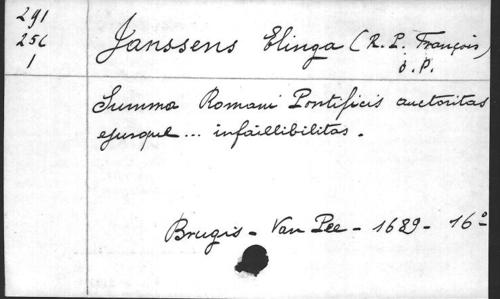 291
256
1
Janssens Elinga (R. P. François)
o.P.
Summa Romani Pontificis auctoritas
ejusque ... infaillibilitas.
Brugis - Van Pee - 1689 - 16°